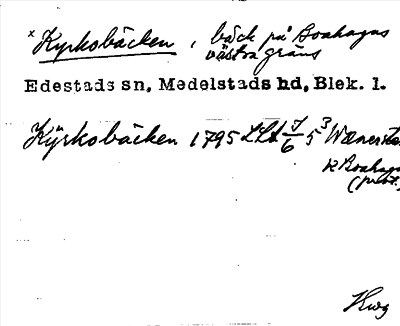 x Kyrkobäcken, bäck på Boahagas
västra gräns
Edestads sn, Medelstads hd, Blek. l.
Kÿrkobäcken 1795 LLA J/6 5³
R Boahaga